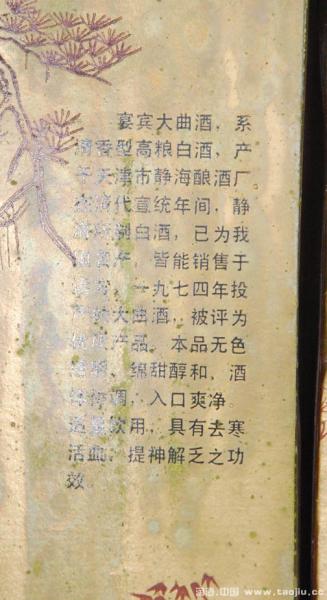 宴宾大曲酒，系
清香型高粮白酒，产
于天津市静海酿酒厂
清代宣统年间，静
白酒，已为我
皆能销售于
一九七四年投
大曲酒，被评为
产品。本品无色
绵甜醇和，酒
调，入口爽净
饮用，具有去寒
活血，提神解乏之功
效
中国 www.taojiu.cc